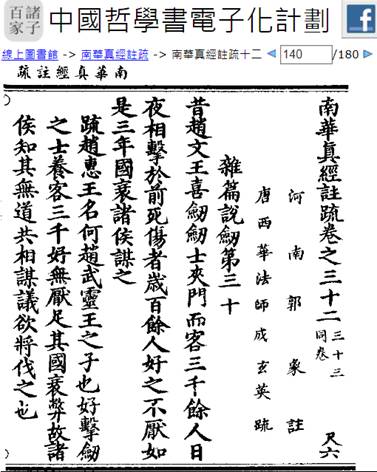 諸子百家
中國哲學書電子化計劃
線上圖書館 -> 南華真經註疏 -> 南華真經註疏十二 140 /180
南華真經註疏
南華真經註疏卷之三十二 三十三同卷 尺六
河南郭象註
唐西華法師成玄英疏
雜篇說劒第三十
昔趙文王喜劒劒士夾門而客三千餘人日
夜相擊於前死傷者歲百餘人好之不厭如
是三年國衰諸侯謀之
疏趙惠王名何趙武靈王之子也好擊劒
之士養客三千好無厭足其國衰弊故諸
侯知其無道共相謀議欲將伐之也